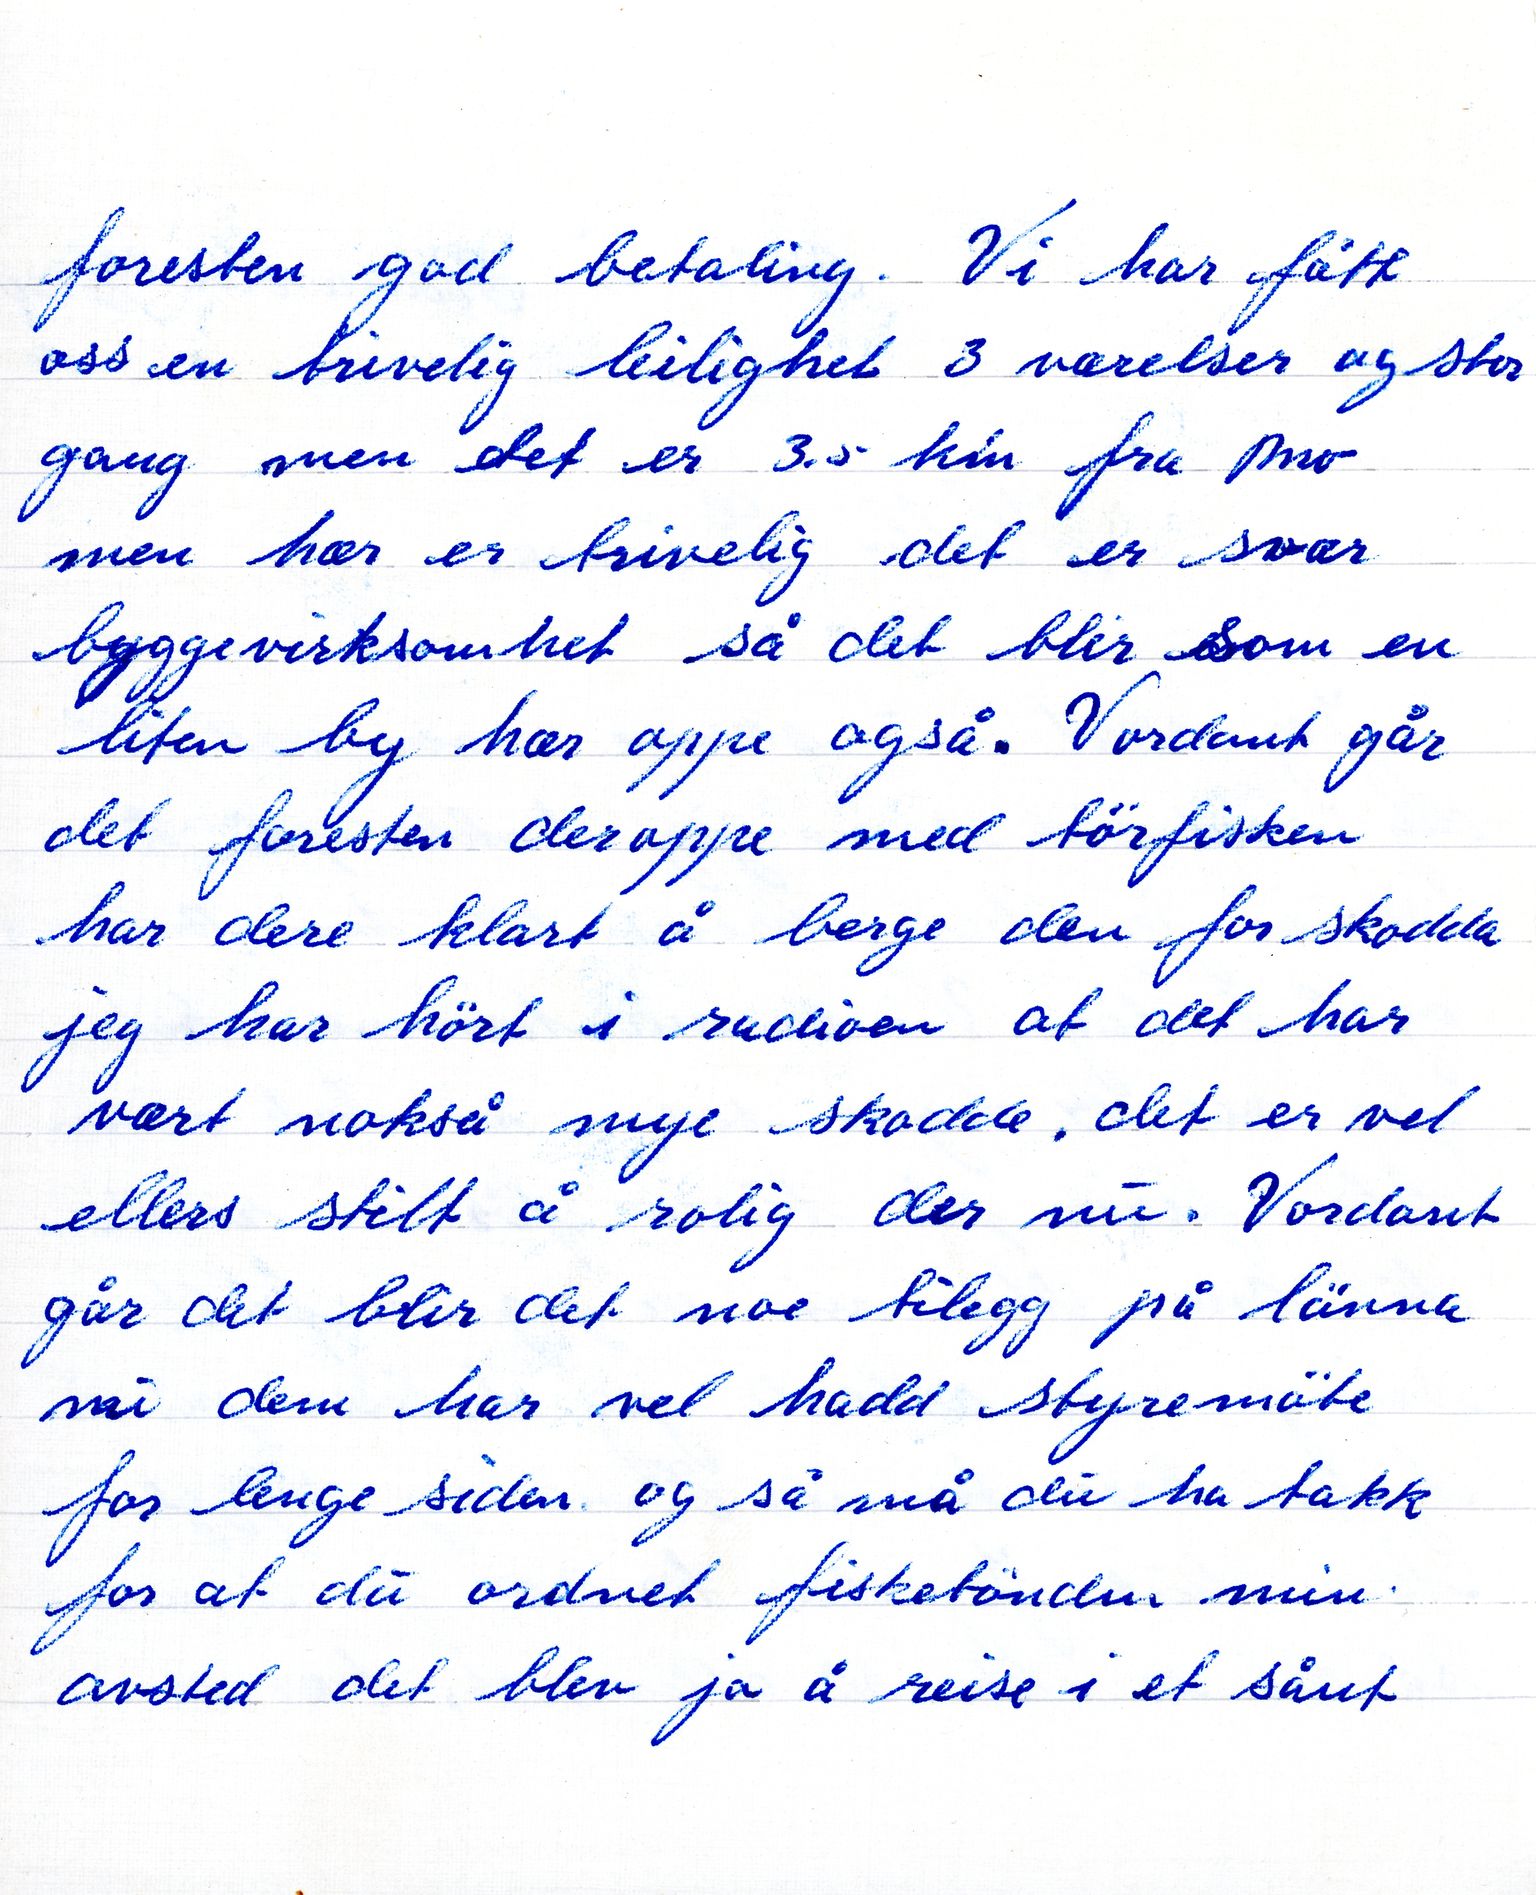 foresten god betaling. Vi har fått
oss en trivelig leilighet 3 værelser og stor
gang men det er 3.5 km fra Mo
men hær er trivelig det er svær
byggevirksomhet så det blir som en
liten by hær oppe også. Vordant går
det foresten deroppe med törfisken
har dere klart å berge den for skodda
jeg har hört i radioen at det har
vært nokså mye skodde. det er vel
ellers stilt å rolig der nu. Vordant
går det blir det noe tilegg på lönna
mi dem har vel hadd styremöte
for lenge siden. og så må du ha takk
for at du ordnet fisketönden min
avsted det blev jo å reise i et sånt